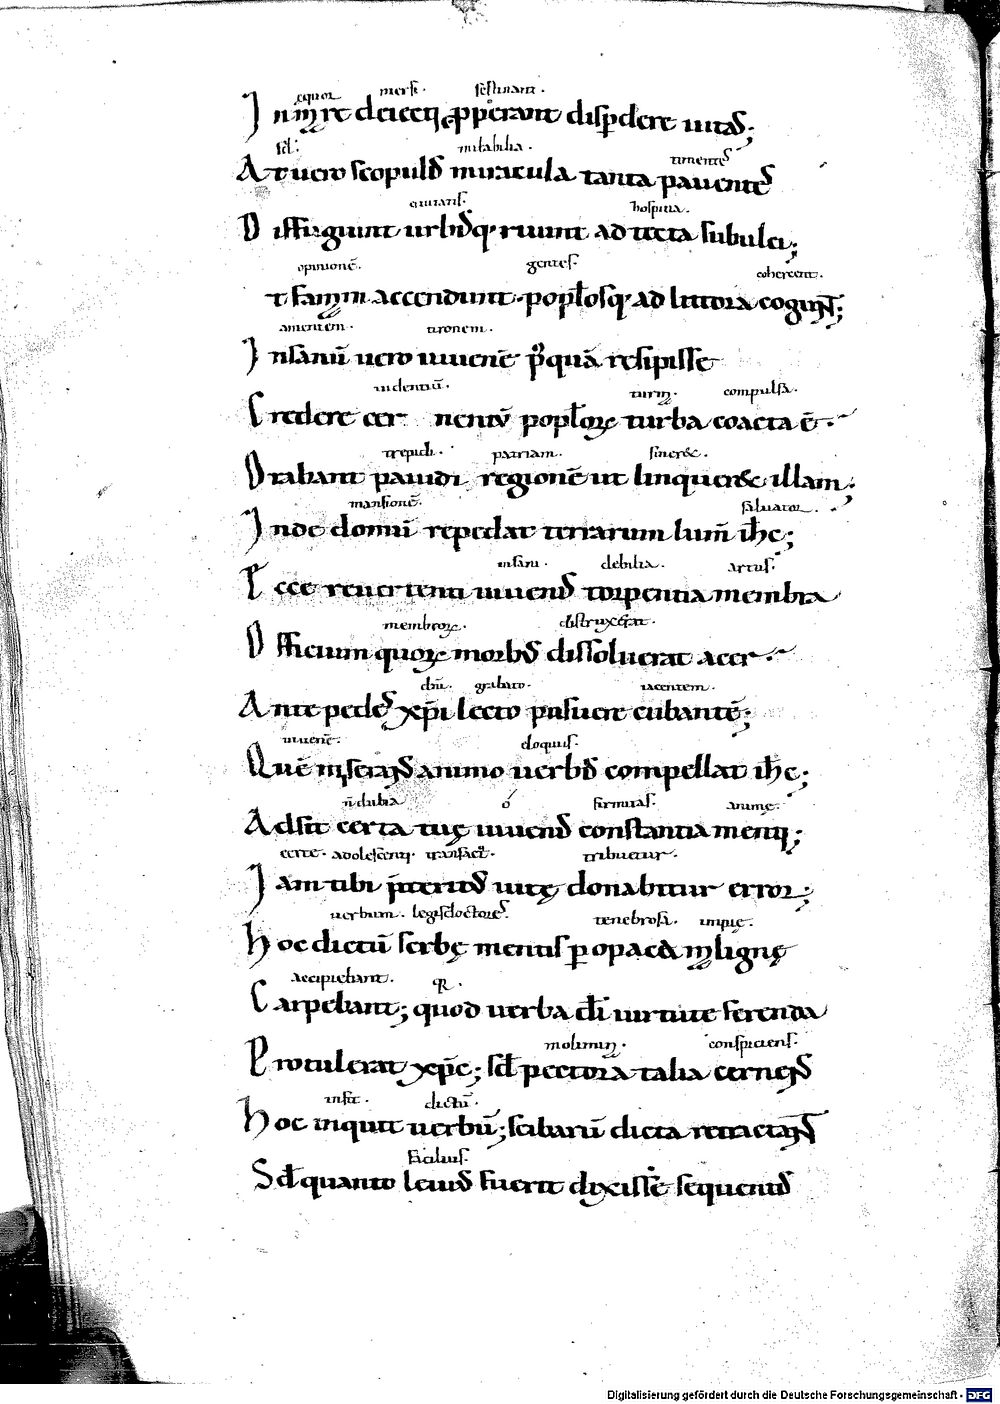 ęquor mersi · festinant ·
In mare deiecti ꝓpperant disꝑdere uitas;
scl̄
mirabilia · timentes
At uero scopulis miracula tanta pauentes
ciuitatis · hospitia ·
Diffugiunt urbisq· ruunt ad tecta subulci;
opinionē · gentes · coherent ·
t famam accendunt · popl̄osq· ad littora cogunt;
amentem · tironem ·
Insanū uero iuuenē p̄quā resipisse
uidentiū · turma · compulsa ·
Credere cernentū popl̄oꝝ turba coacta ē ·
trepidi · patriam · sineret ·
Orabant pauidi regionē ut linqueret illam;
mansionē · saluator ·
Inde domū repedat terrarum lum̄ ih̄c;
insani · debilia · artus ·
Ecce reuertenti iuuenis torpentia membra
membroꝝ · distruxerat ·
Officium quoꝝ morbis dissoluerat acer ·
dn̄i · grabato · iacentem ·
Ante pedes xp̄i lecto posuere cubantē;
iuuenē · eloquiis ·
Quē miserans animo uerbis compellat ih̄c;
n̄ dubia · o · firmitas · animę ·
Adsit certa tuę iuuenis constantia menti;
certe · adolescenti · transacti · tribuetur ·
Iam tibi p̄teritis uitę donabitur error;
uerbum · legis doctores · tenebrosa · impię ·
Hoc dictū scribę mentis ꝑ opaca malignę
accipiebant ·
Carpebant; quod uerba dī uirtute ferenda
molimina · conspiciens ·
Protulerat xp̄c; sed pectora talia cernens
infit · dictū ·
Hoc inquit uerbū; scibarū dicta retractans
facilius ·
Sed quanto leuius fuerit dixisse sequentis
Digitalisierung gefördert durch die Deutsche Forschungsgemeinschaft - DFG